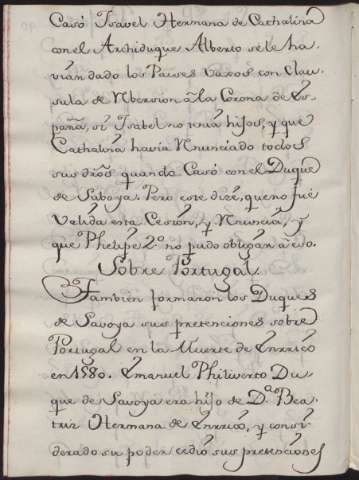 Casó Isavel Hermana de Cathalina
con el Archiduque Alberto se le ha-
vían dado los Países vaxos con Clau-
sula de Rbersion à la Corona de Es-
paña, si Isabel no tenía hijos, y que
Cathalina havía Rnunciado todos
sus dros quando Casó con el Duque
de Saboya. Pero este dize, que no fué
valida esta Cesión, y Rnuncia, y
que Phelipe 2º no pudo obligar à eso.
Sobre Portugal
También formaron los Duques
de Savoya sus pretenciones sobre
Portugal en la Muerte de Enrrico
en 1580. Emanuel Philiverto Du-
que de Savoya era hijo de D.ª Bea-
triz Hermana de Enrrico, y consi-
derado su poder cedió sus pretenciones